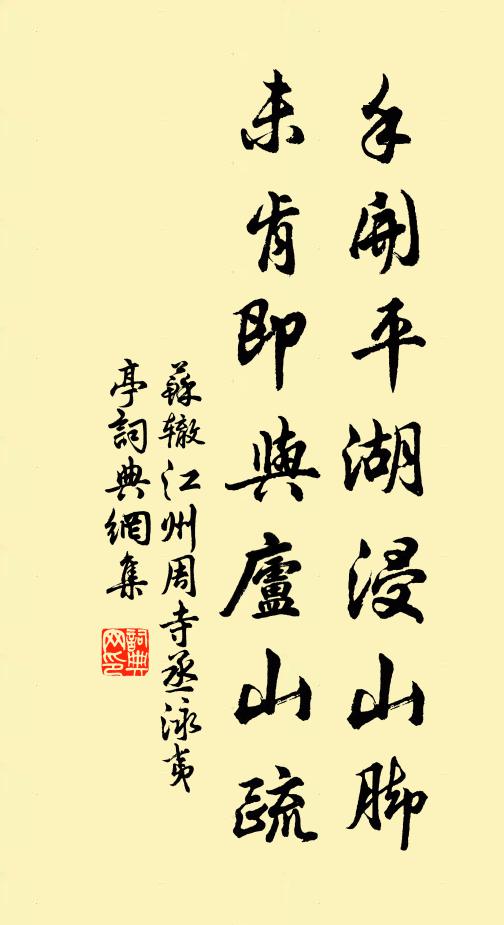 手開平湖浸山脚
未肯即與廬山疏
蘇辙江州周寺丞泳夷
亭詞典網集
詞典
网印